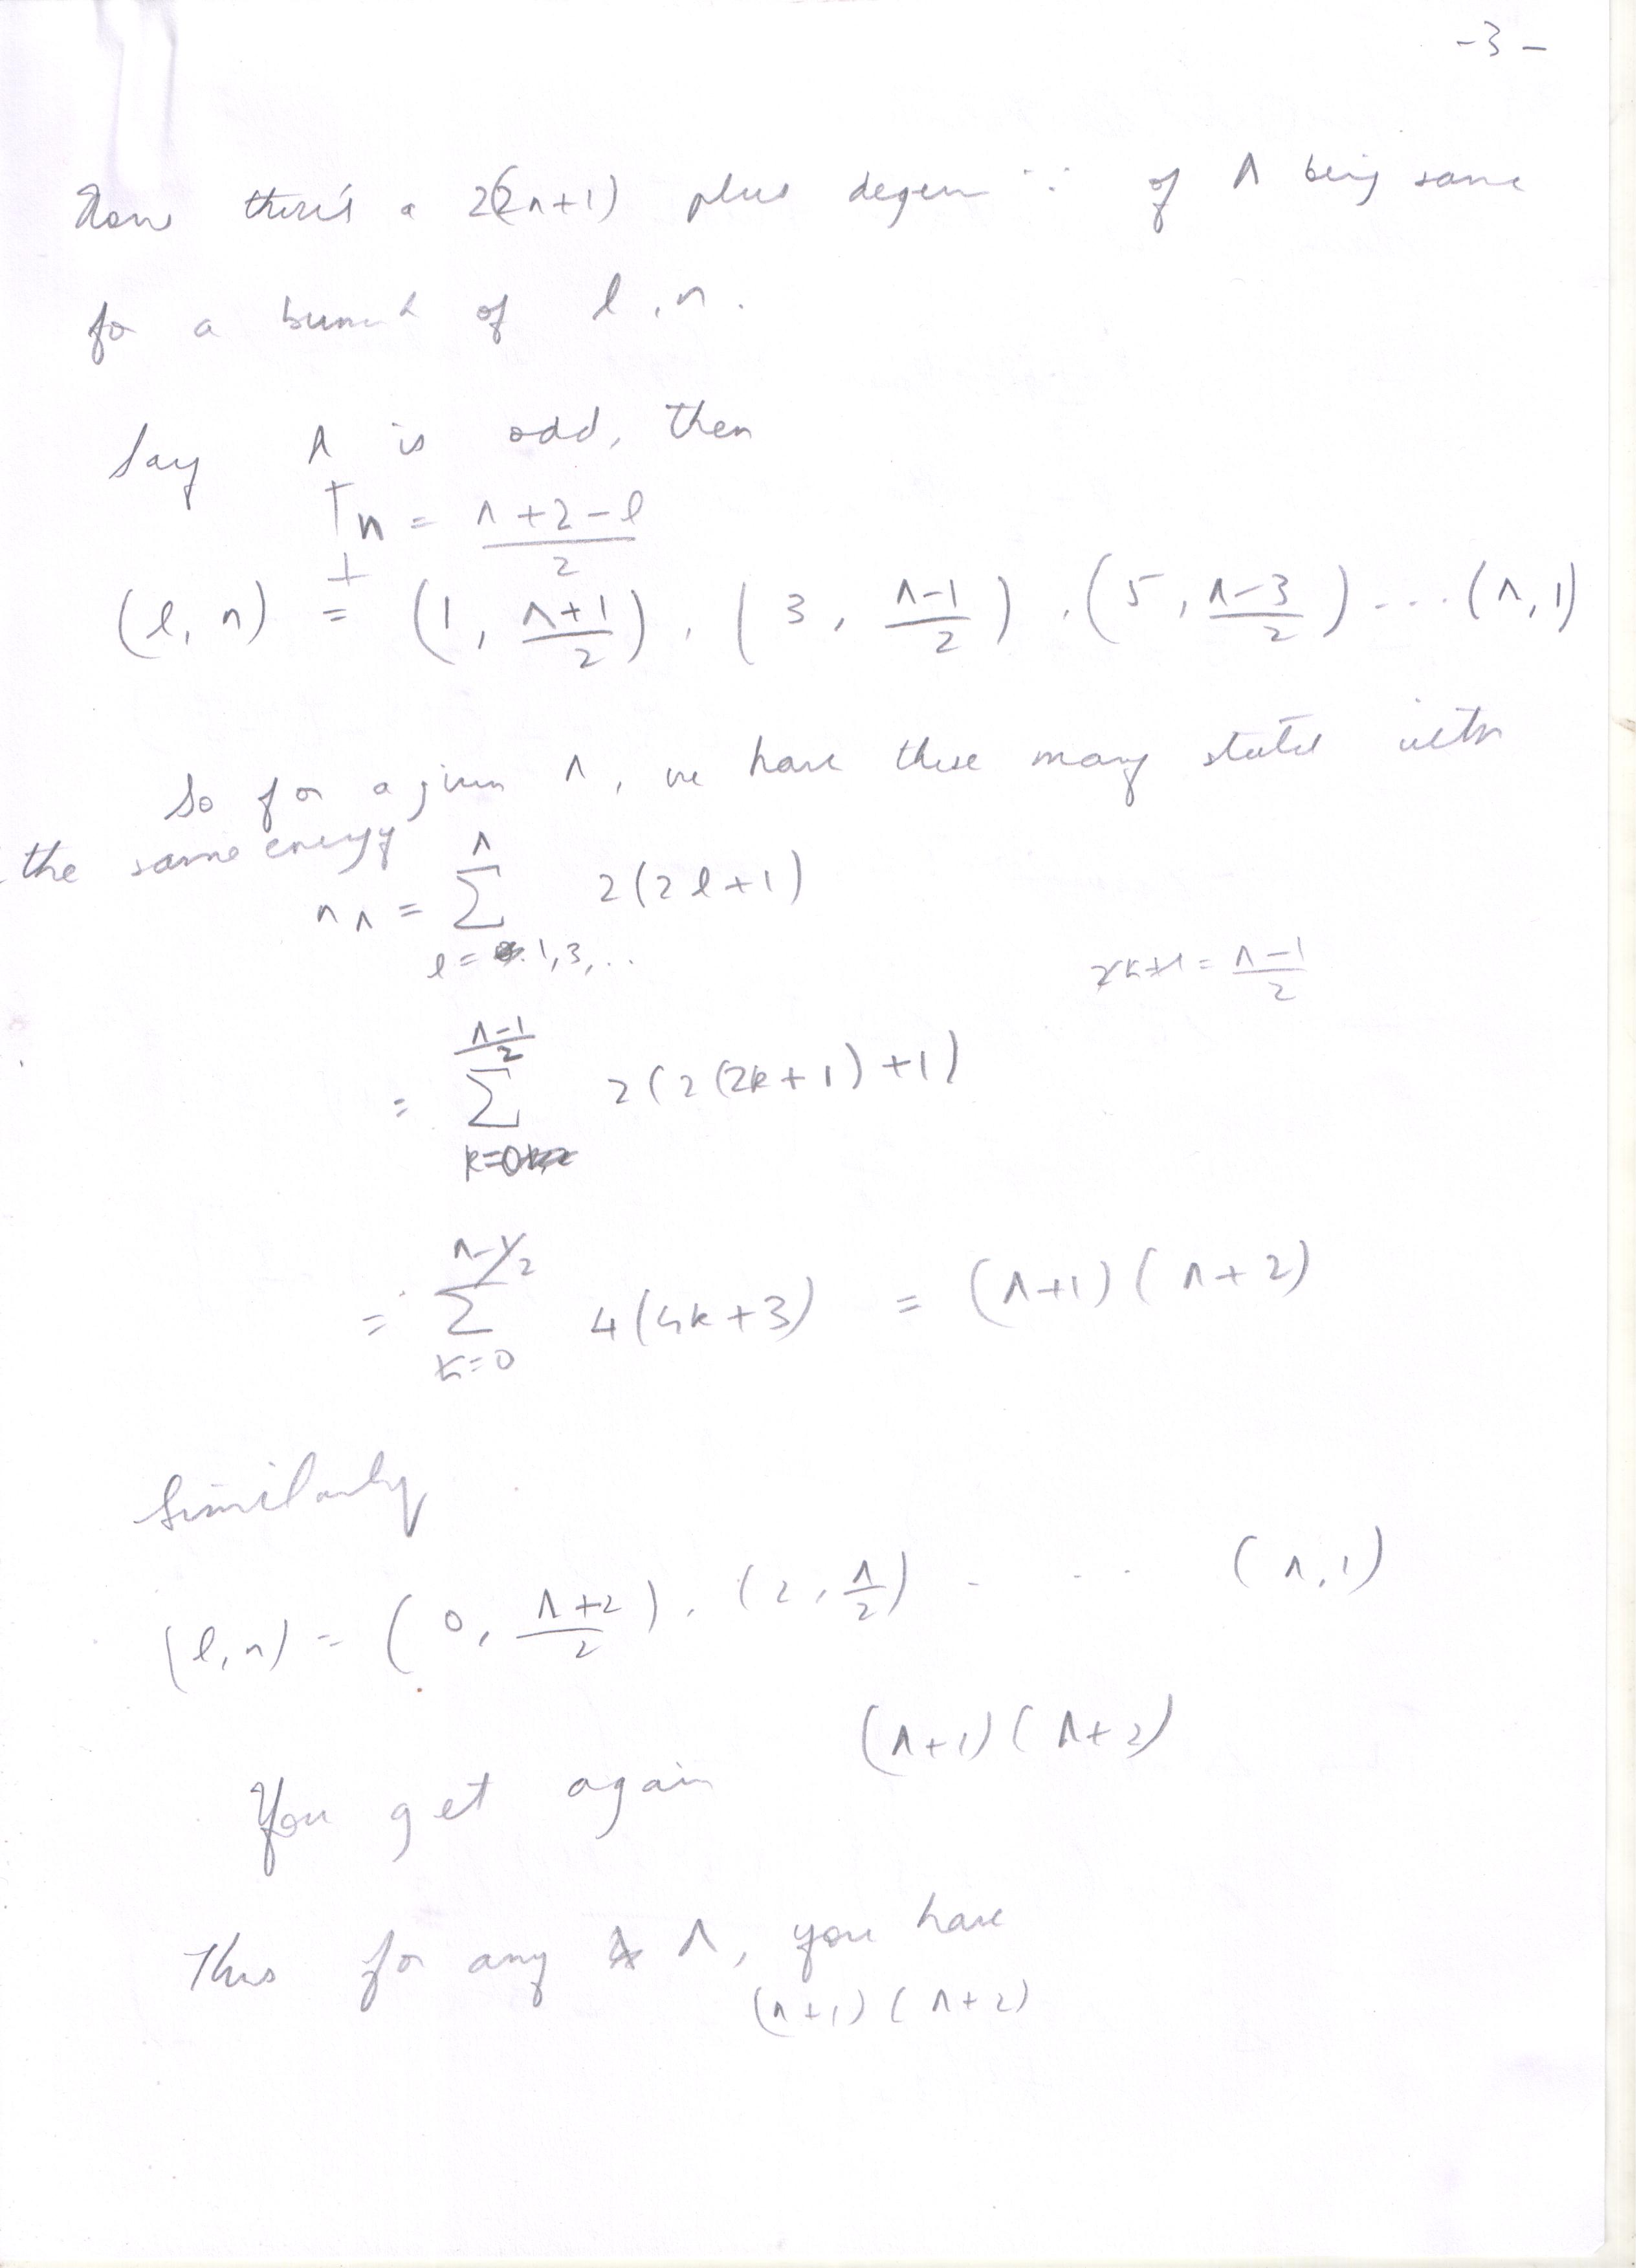 -3-
Now there's a 2(2n+1) plus degen ∵ of Λ being same
for a bunch of l, n.
Say Λ is odd, then
n = (Λ+2-l)/2
(l, n) = (1, (Λ+1)/2), (3, (Λ-1)/2), (5, (Λ-3)/2) ... (Λ, 1)
So for a given Λ, we have these many states with
the same energy
n_Λ = Σ_{l=1,3,..}^{Λ} 2(2l+1)
2k+1 = (Λ-1)/2
= Σ_{k=0}^{(Λ-1)/2} 2(2(2k+1)+1)
= Σ_{k=0}^{Λ-1/2} 4(4k+3) = (Λ+1)(Λ+2)
Similarly
(l, n) = (0, (Λ+2)/2), (2, Λ/2) - ... (Λ, 1)
You get again (Λ+1)(Λ+2)
Thus for any Λ, you have
(Λ+1)(Λ+2)